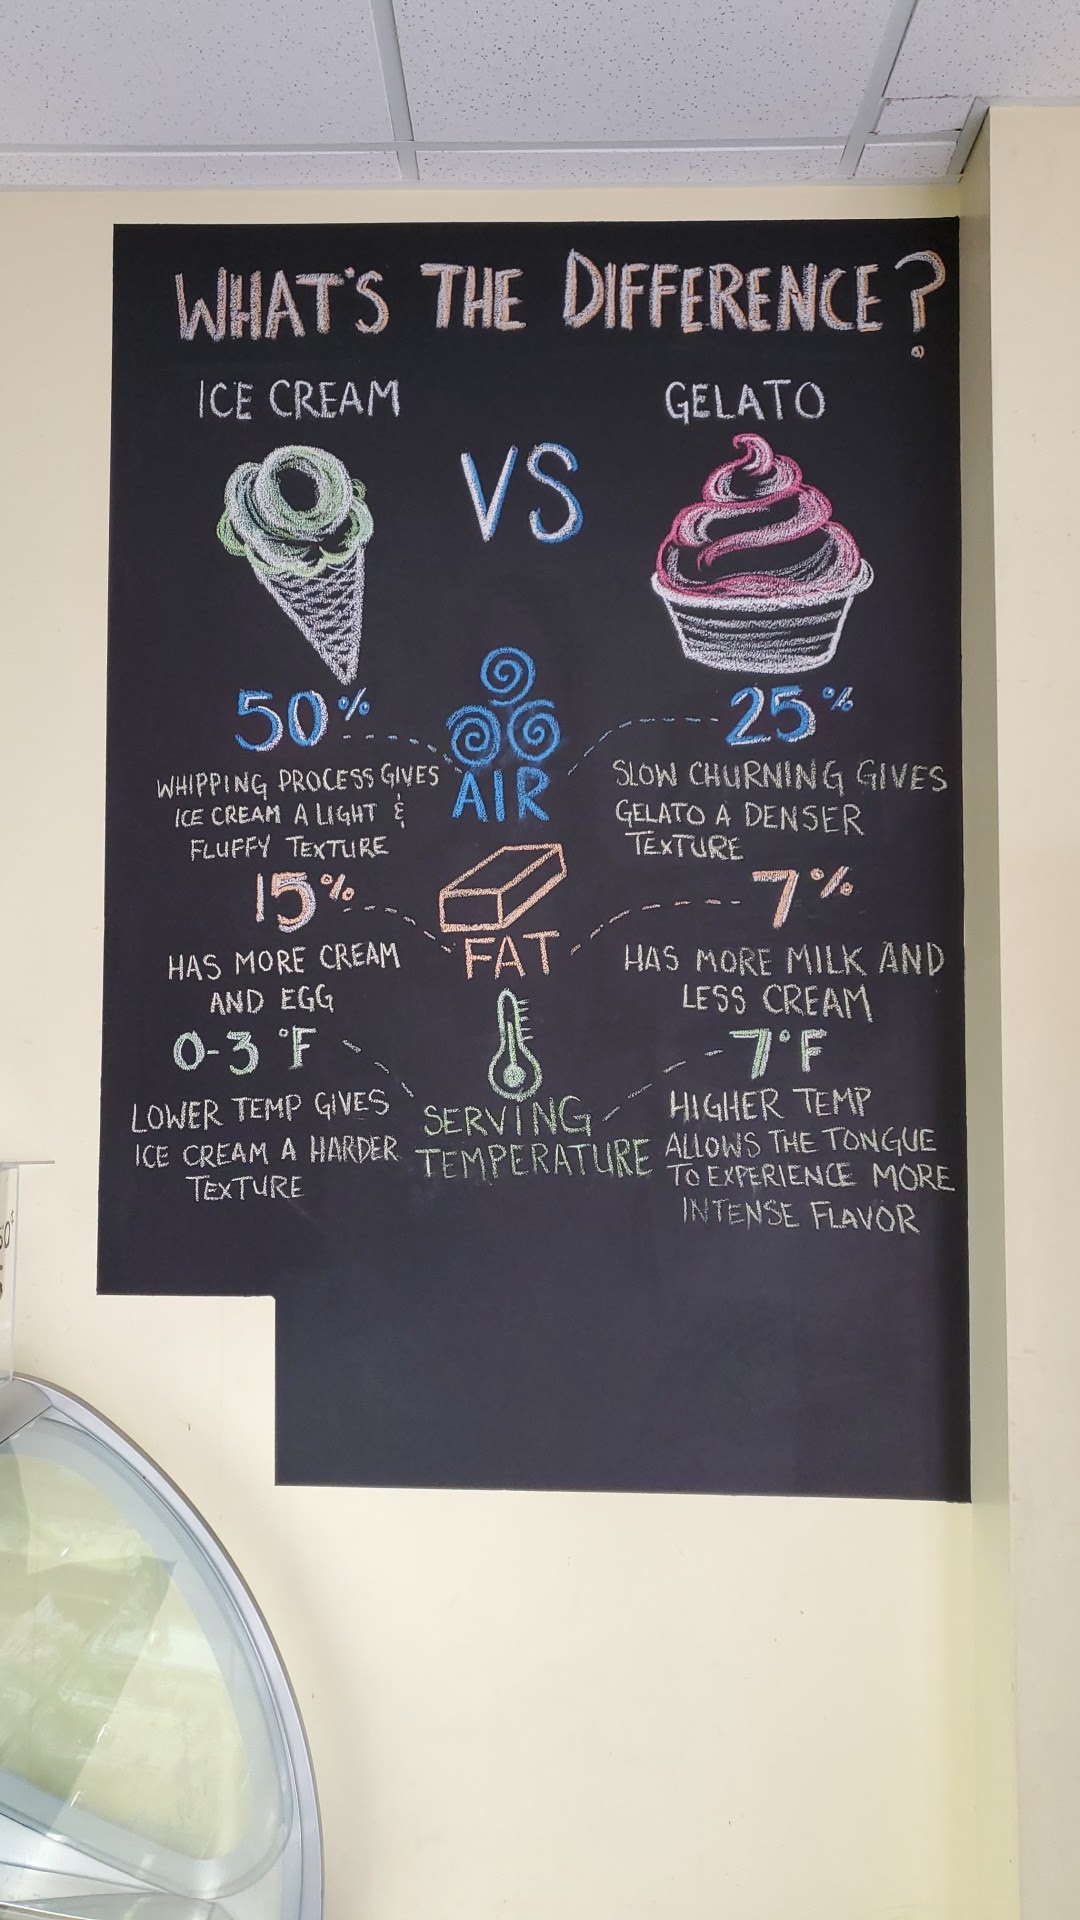 WHAT'S THE DIFFERENCE?
ICE CREAM
VS
GELATO
50%
WHIPPING PROCESS GIVES
ICE CREAM A LIGHT &
FLUFFY TEXTURE
AIR
25%
SLOW CHURNING GIVES
GELATO A DENSER
TEXTURE
15%
HAS MORE CREAM
AND EGG
FAT
7%
HAS MORE MILK AND
LESS CREAM
0-3°F
LOWER TEMP GIVES
ICE CREAM A HARDER
TEXTURE
SERVING
TEMPERATURE
7°F
HIGHER TEMP
ALLOWS THE TONGUE
TO EXPERIENCE MORE
INTENSE FLAVOR